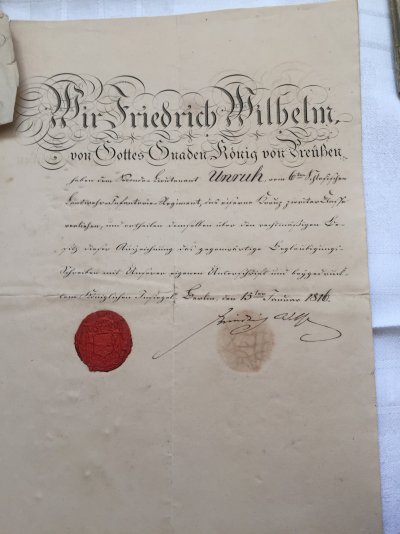 Wir Friedrich Wilhelm,
von Gottes Gnaden König von Preußen
haben dem Seconde-Lieutenant Unruh vom 6ten Schlesischen
Landwehr-Infanterie-Regiment, das eiserne Kreuz zweiter Klasse
verliehen, und ertheilen demselben über den rechtmäßigen Be-
sitz dieser Auszeichnung das gegenwärtige Beglaubigungs-
Schreiben mit Unserer eigenen Unterschrift und beygedruck-
tem Königlichen Insiegel. Berlin, den 15ten Januar 1816.
Friedrich Wilh